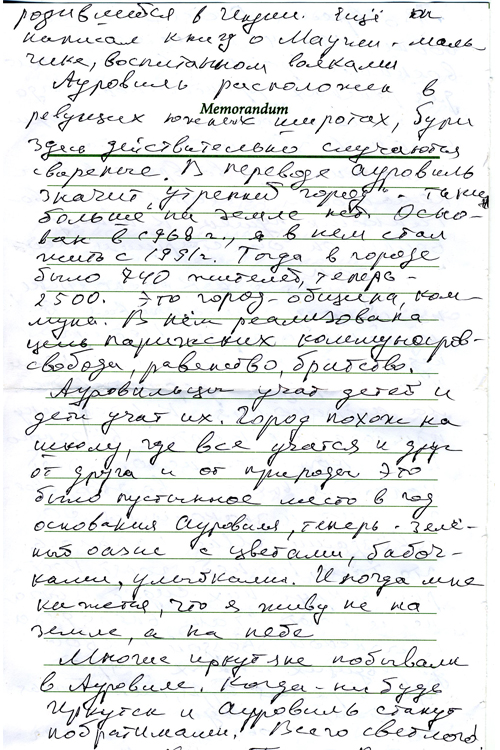 родившегося в Индии. Ещё он
написал книгу о Маугли - маль-
чике, воспитанном волками
Ауровиль расположен в
Memorandum
ревущих южных широтах, бури
здесь действительно случаются
свирепые. В переводе Ауровиль
значит „утренний город". Таких
больше на земле нет. Осно-
ван в 1968 г., я в нем стал
жить с 1991 г. Тогда в городе
было 740 жителей, теперь -
2500. Это город-община, ком-
муна. В нём реализована
цель парижских коммунаров-
свобода, равенство, братство.
Ауровильцы учат детей и
дети учат их. Город похож на
школу, где все учатся и друг
от друга и от природы Это
было пустынное место в год
основания Ауровиля, теперь - зелё-
ный оазис с цветами, бабоч-
ками, улыбками. Иногда мне
кажется, что я живу не на
земле, а на небе
Многие иркутяне побывали
в Ауровиле. Когда-нибудь
Иркутск и Ауровиль станут
побратимами. Всего светлого!